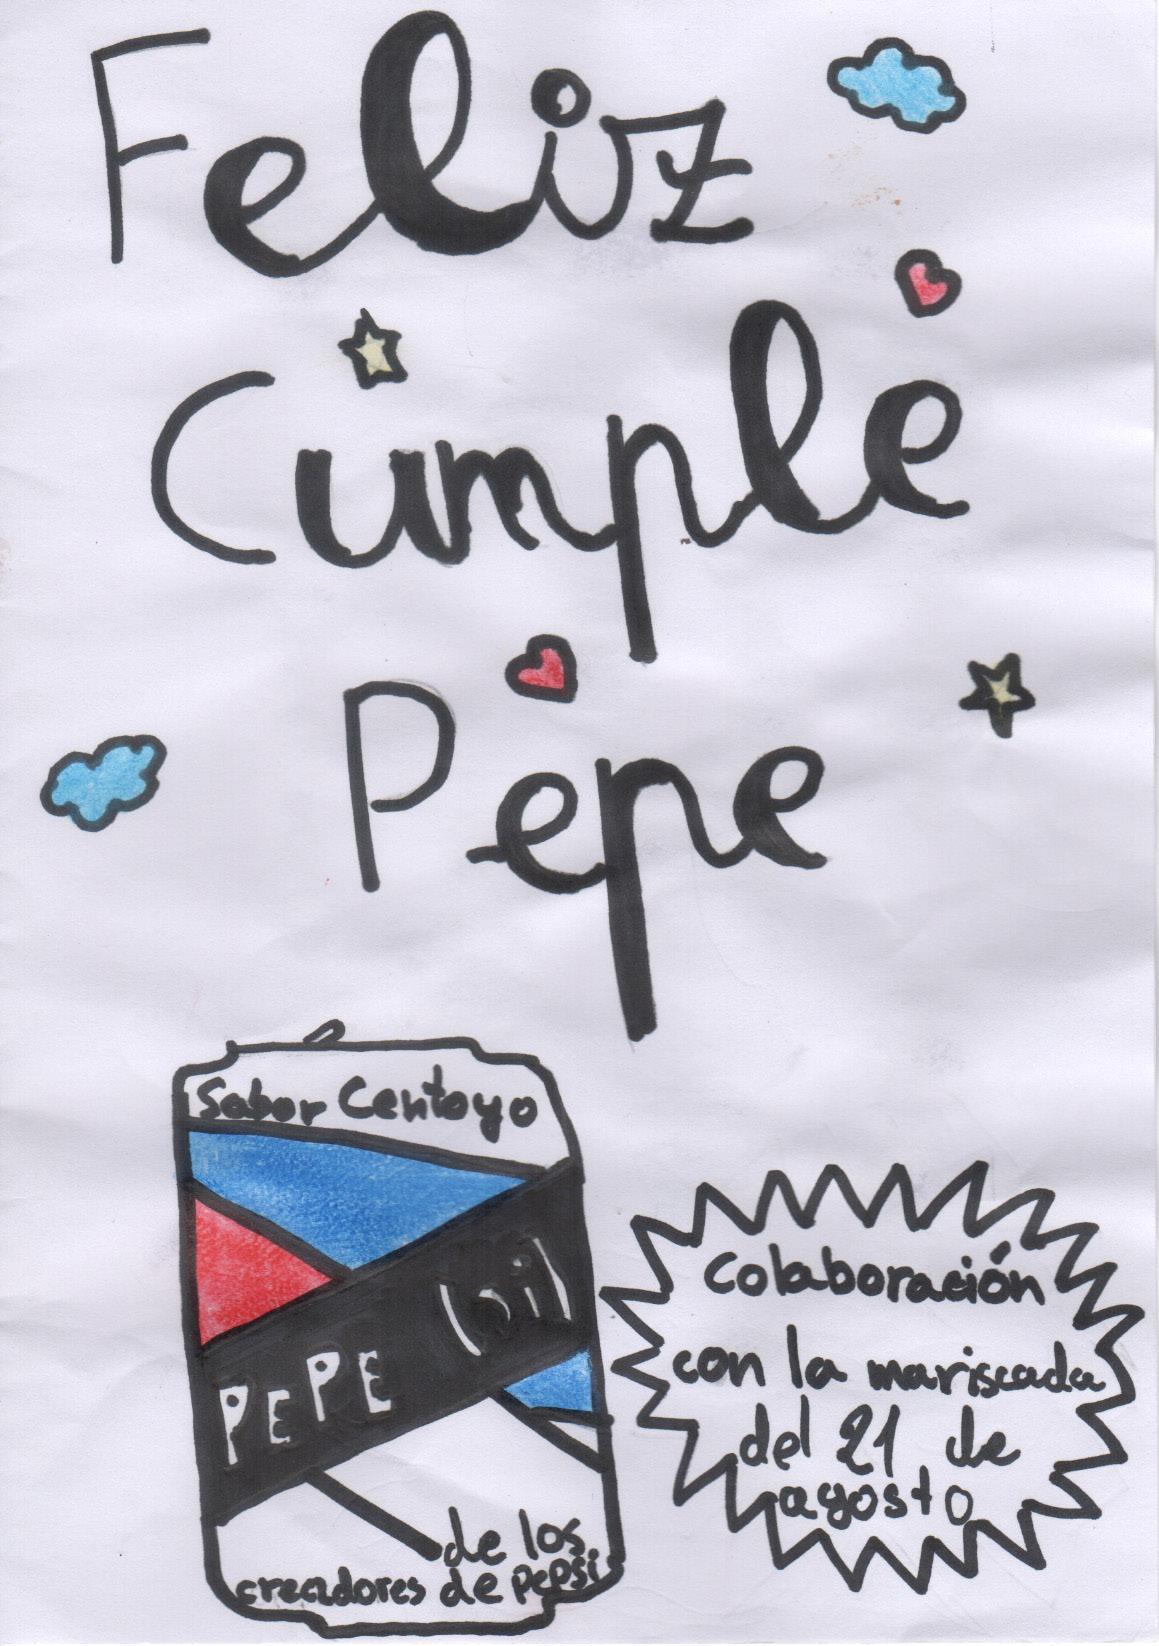 Feliz
Cumple
Pepe
Sabor Centoyo
PEPE (si)
de los
creadores de pepsi
Colaboración
con la mariscada
del 21 de
agosto